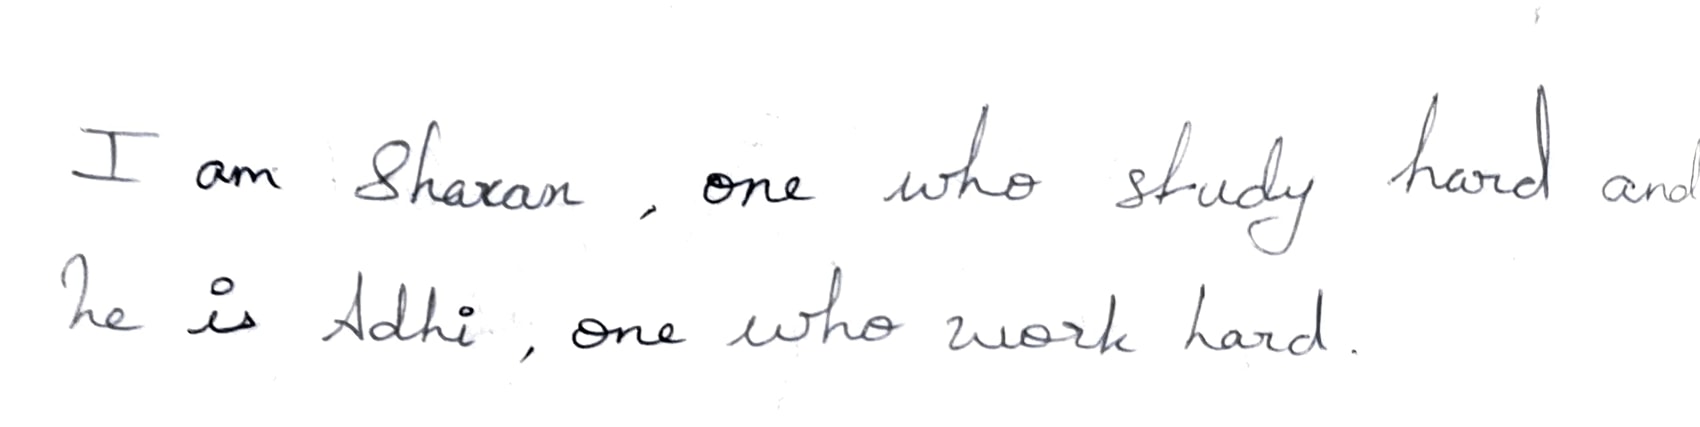 I am Sharan, one who study hard and
he is Adhi, one who work hard.